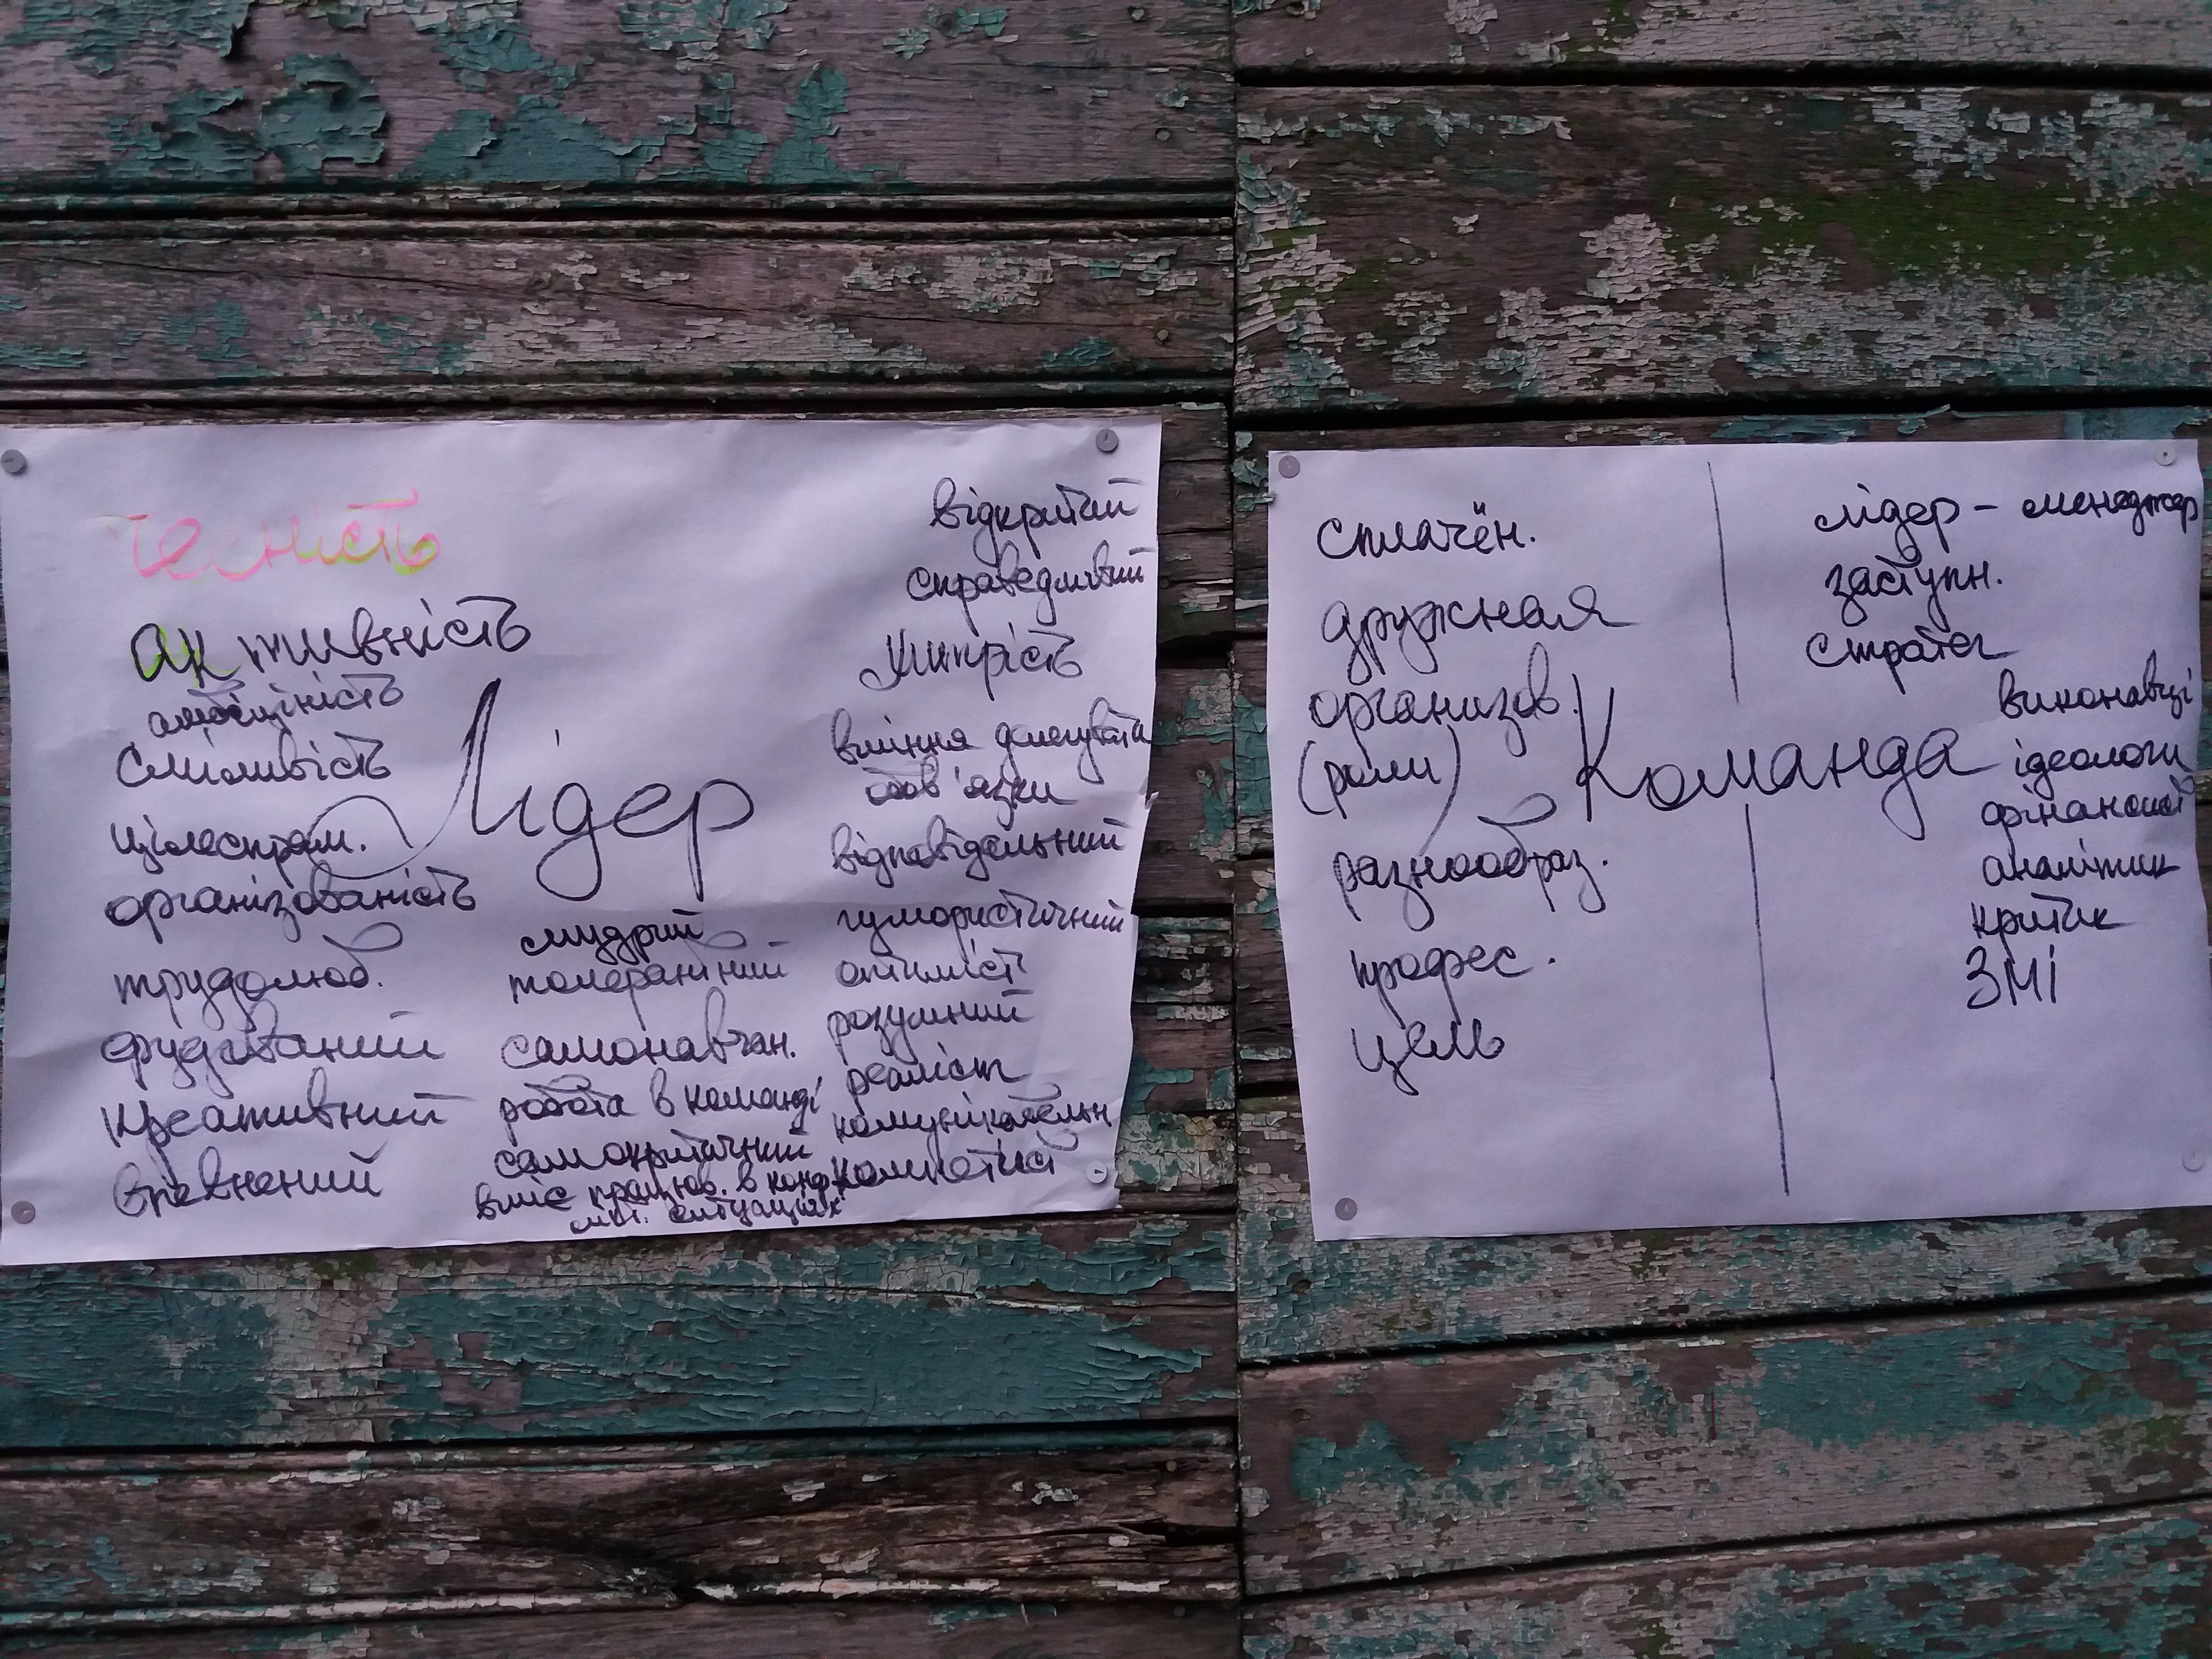 чесність
активність
амбіційність
Сміливість
цілеспрям.
організованість
трудолюб.
ерудований
креативний
впевнений
Лідер
мудрий
толерантний
самонавчан.
робота в команді
самокритичний
вміє працюв. в конф
лікт. ситуаціях
відкритий
справедливий
вміння делегувати
обов'язки
відповідальний
гумористичний
оптиміст
розумний
реаліст
комунікабельн
сплочён.
дружная
организов.
(роли)
разнообраз.
професс.
цель
Команда
лідер - менеджер
заступн.
стратег
виконавці
ідеологи
фінансист
аналітик
критик
ЗМІ